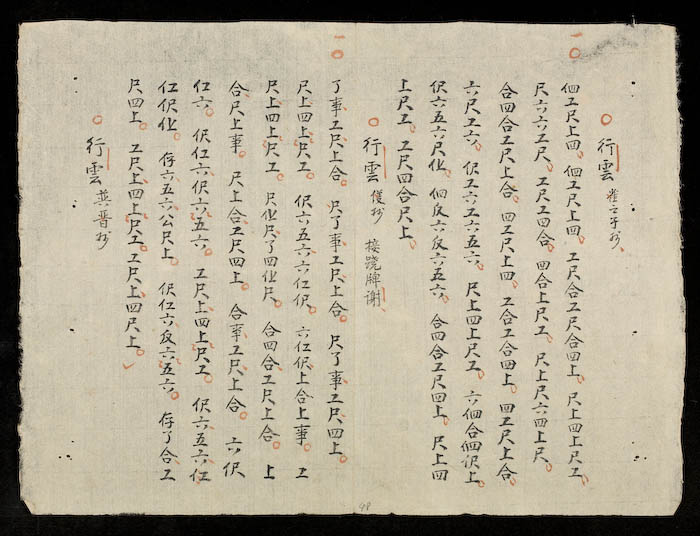 行雲
伵工尺上四。伵工尺上四。工尺合工尺合四上。尺上四上尺工。
尺六六工尺。工尺工四合。四合上尺工。尺上尺六四上尺。
合四合工尺上合。四工尺上四。工合工合四上。四工尺上合。
六尺工六。伬工六工六五六。尺上四上尺工。六伵合伵伬上。
伬六五六尺化。伵反六反六五六。合四合工尺四上。尺上四
上尺工。工尺四合尺上。
行雲 抄 接跷牌謝
了事工尺上合。尺了事工尺上合。尺了事工尺四上。
尺上四上尺工。伬六五六六仜伬。六仜伬上合上事。工
尺上四上尺工。尺化尺了四化尺。合四合工尺上合。上
合尺上事。尺上合工尺四上。合事工尺上合。六伬
仜六。伬仜六伬六五六。工尺上四上尺工。伬六五六仜
仜伬化。存六五六公尺上。伬仜六反六五六。存了合工
尺四上。工尺上四上尺工。工尺上四尺上。
行雲 晋抄
98